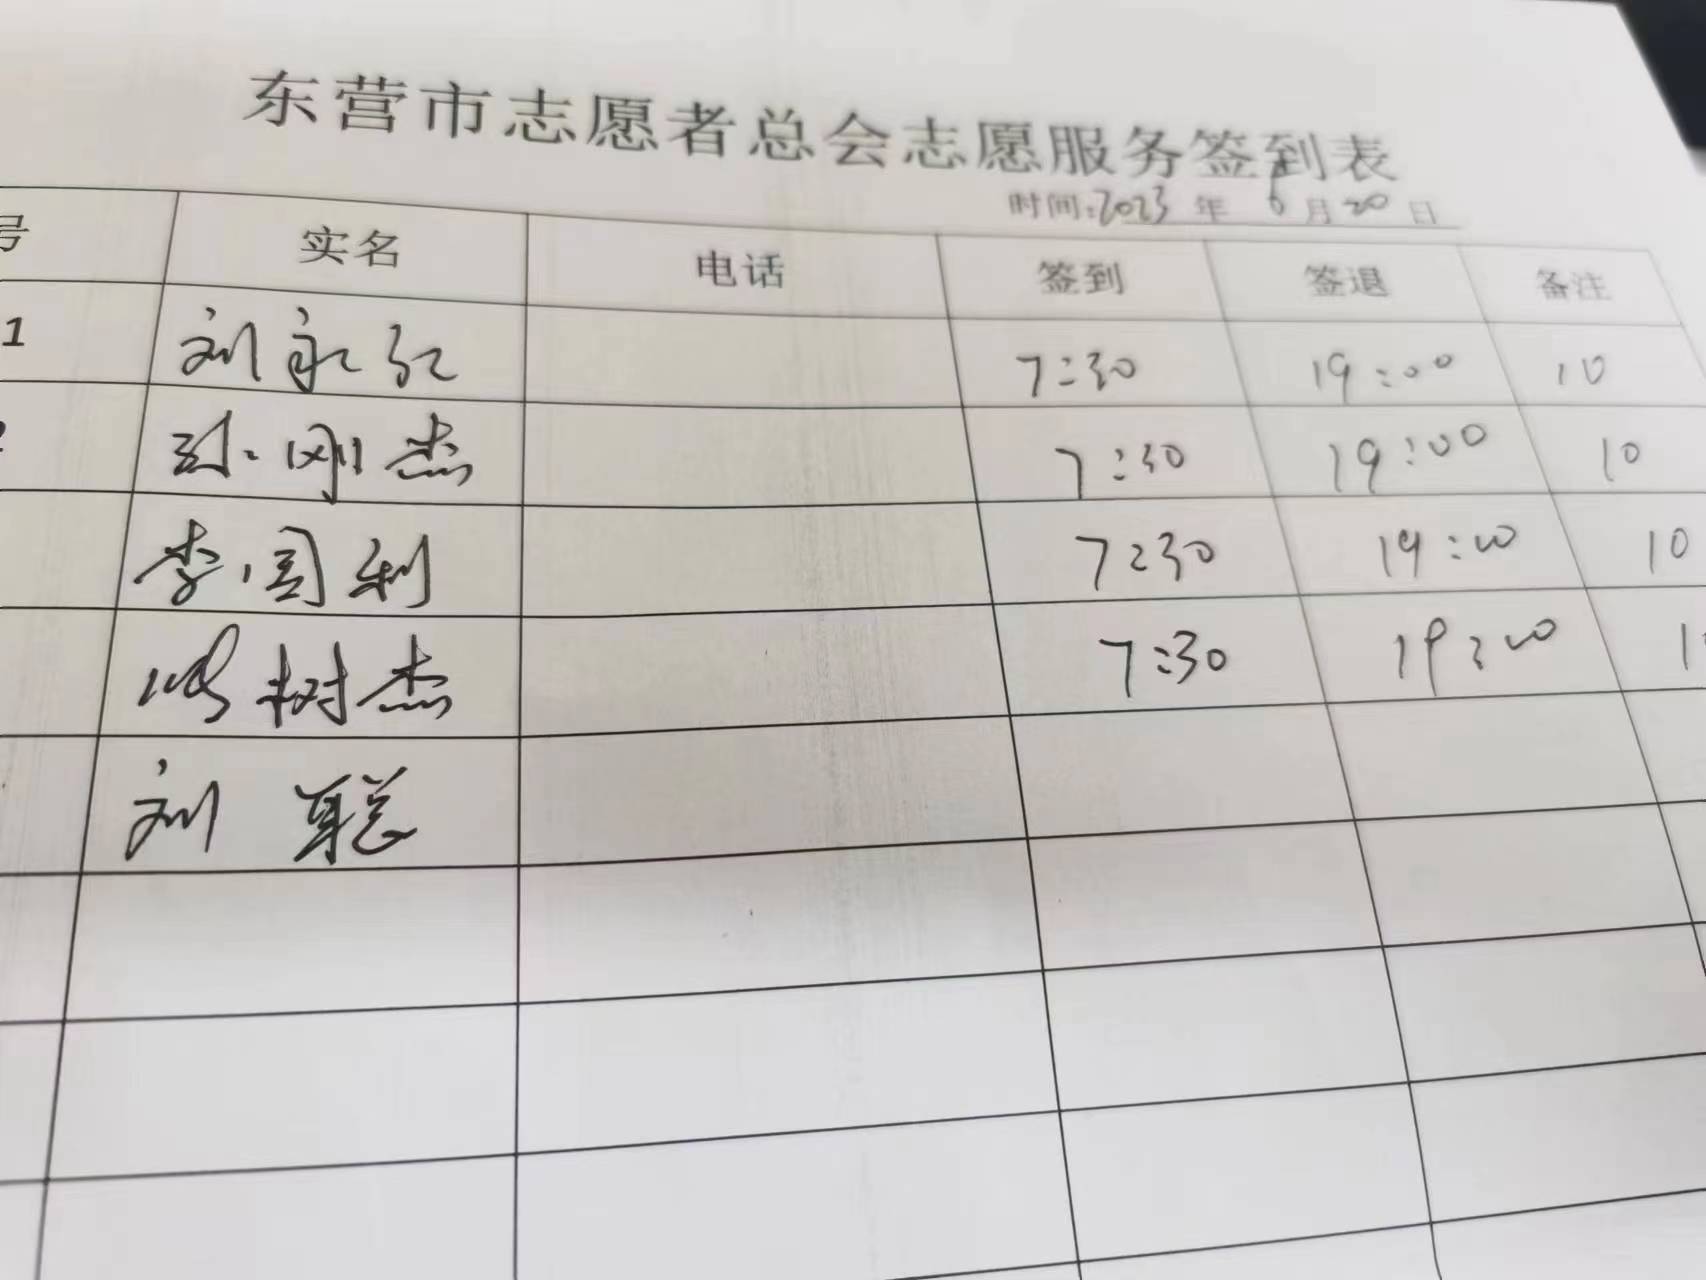 东营市志愿者总会志愿服务签到表
时间:2023年 6月20日
号 实名 电话 签到 签退 备注
1 刘永红 7:30 19:00 10
2 孙刚杰 7:30 19:00 10
李国利 7:30 19:00 10
树杰 7:30 19:00
刘聪